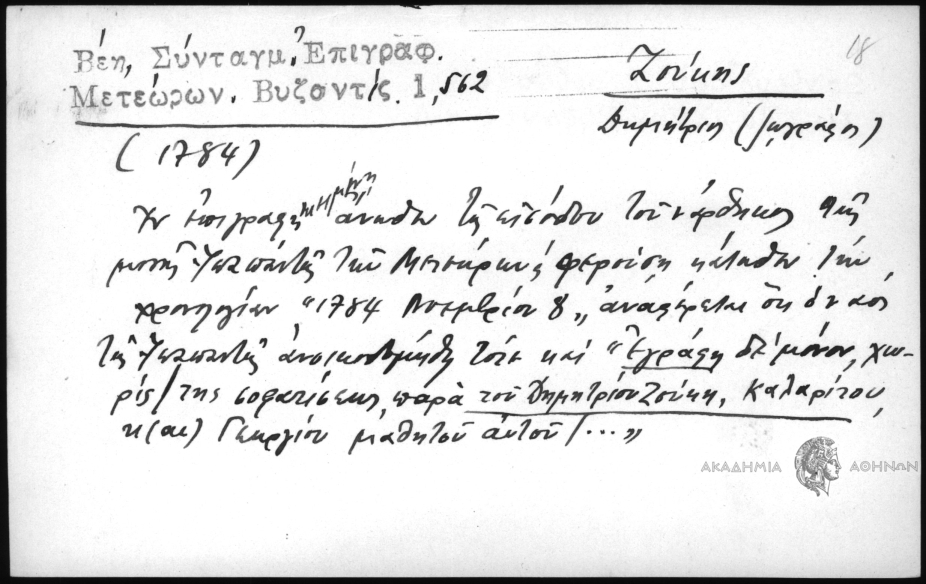 18
Βέη, Σύνταγμ. Ἐπιγραφ.
Μετεώρων. Βυζαντίς. 1, 562
Ζούκης
Δημήτριος (ζωγράφος)
(1784)
Ἐν ἐπιγραφῇ κτημένῃ ἄνωθεν τῆς εἰσόδου τοῦ νάρθηκος τῆς
μονῆς Ὑπαπαντῆς τῶν Μετεώρων, φερούσῃ κάτωθεν τὴν
χρονολογίαν "1784 Νοεμβρίου 8", ἀναφέρεται ὅτι ὁ ναὸς
τῆς Ὑπαπαντῆς ἀνῳκοδομήθη τότε καὶ "Ἐγράφη δὲ μόνον, χω-
ρίς / της σοφατίσεως, παρὰ τοῦ Δημητρίου Ζούκη, Καλαρίτου,
κ(αι) Γεωργίου μαθητοῦ αὐτοῦ / ..."
ΑΚΑΔΗΜΙΑ ΑΘΗΝΩΝ